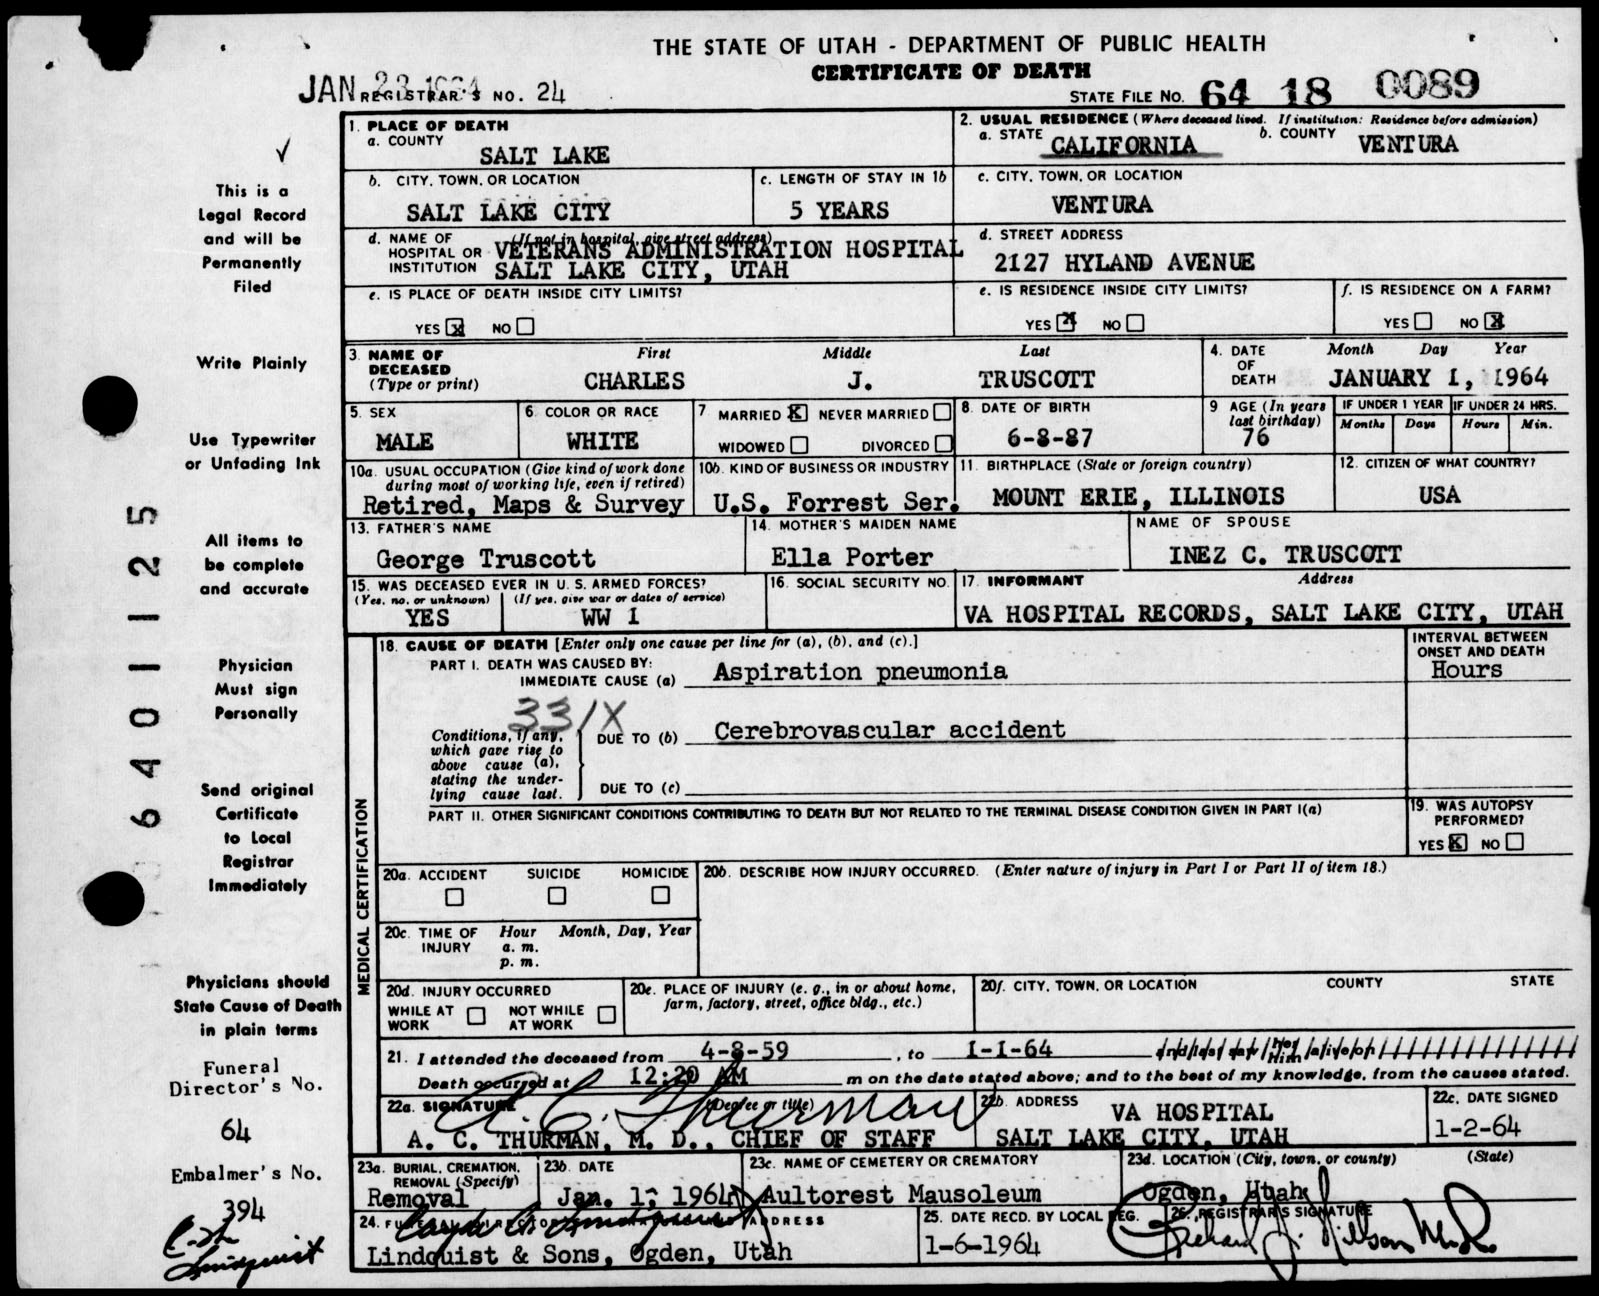 THE STATE OF UTAH - DEPARTMENT OF PUBLIC HEALTH
CERTIFICATE OF DEATH
JAN 23 1964 REGISTRAR'S NO. 24
STATE FILE NO. 64 18 0089
1. PLACE OF DEATH
a. COUNTY
SALT LAKE
2. USUAL RESIDENCE (Where deceased lived. If institution: Residence before admission)
a. STATE CALIFORNIA b. COUNTY VENTURA
b. CITY, TOWN, OR LOCATION
SALT LAKE CITY
c. LENGTH OF STAY IN 1b
5 YEARS
c. CITY, TOWN, OR LOCATION
VENTURA
d. NAME OF HOSPITAL OR INSTITUTION
(If not in hospital, give street address)
VETERANS ADMINISTRATION HOSPITAL
SALT LAKE CITY, UTAH
d. STREET ADDRESS
2127 HYLAND AVENUE
e. IS PLACE OF DEATH INSIDE CITY LIMITS?
YES X NO
e. IS RESIDENCE INSIDE CITY LIMITS?
YES X NO
f. IS RESIDENCE ON A FARM?
YES NO X
3. NAME OF DECEASED (Type or print)
First Middle Last
CHARLES J. TRUSCOTT
4. DATE OF DEATH
Month Day Year
JANUARY 1, 1964
5. SEX
MALE
6. COLOR OR RACE
WHITE
7 MARRIED X NEVER MARRIED
WIDOWED DIVORCED
8. DATE OF BIRTH
6-8-87
9 AGE (In years last birthday)
76
IF UNDER 1 YEAR
Months Days
IF UNDER 24 HRS.
Hours Min.
10a. USUAL OCCUPATION (Give kind of work done
during most of working life, even if retired)
Retired, Maps & Survey
10b. KIND OF BUSINESS OR INDUSTRY
U.S. Forrest Ser.
11. BIRTHPLACE (State or foreign country)
MOUNT ERIE, ILLINOIS
12. CITIZEN OF WHAT COUNTRY?
USA
13. FATHER'S NAME
George Truscott
14. MOTHER'S MAIDEN NAME
Ella Porter
NAME OF SPOUSE
INEZ C. TRUSCOTT
15. WAS DECEASED EVER IN U. S. ARMED FORCES?
(Yes, no, or unknown) (If yes, give war or dates of service)
YES WW 1
16. SOCIAL SECURITY NO.
17. INFORMANT Address
VA HOSPITAL RECORDS, SALT LAKE CITY, UTAH
MEDICAL CERTIFICATION
18. CAUSE OF DEATH [Enter only one cause per line for (a), (b), and (c).]
INTERVAL BETWEEN ONSET AND DEATH
PART I. DEATH WAS CAUSED BY:
IMMEDIATE CAUSE (a) Aspiration pneumonia
Hours
331X
Conditions, if any, which gave rise to above cause (a), stating the underlying cause last.
DUE TO (b) Cerebrovascular accident
DUE TO (c)
PART II. OTHER SIGNIFICANT CONDITIONS CONTRIBUTING TO DEATH BUT NOT RELATED TO THE TERMINAL DISEASE CONDITION GIVEN IN PART I(a)
19. WAS AUTOPSY PERFORMED?
YES X NO
20a. ACCIDENT SUICIDE HOMICIDE
20b. DESCRIBE HOW INJURY OCCURRED. (Enter nature of injury in Part I or Part II of item 18.)
20c. TIME OF INJURY
Hour Month, Day, Year
a. m.
p. m.
20d. INJURY OCCURRED
WHILE AT WORK NOT WHILE AT WORK
20e. PLACE OF INJURY (e. g., in or about home,
farm, factory, street, office bldg., etc.)
20f. CITY, TOWN, OR LOCATION COUNTY STATE
21. I attended the deceased from 4-8-59, to 1-1-64 and last saw her him alive on
Death occurred at 12:20 AM m on the date stated above; and to the best of my knowledge, from the causes stated.
22a. SIGNATURE (Degree or title)
A. C. Thurman
A. C. THURMAN, M. D., CHIEF OF STAFF
22b. ADDRESS
VA HOSPITAL
SALT LAKE CITY, UTAH
22c. DATE SIGNED
1-2-64
23a. BURIAL, CREMATION, REMOVAL (Specify)
Removal
23b. DATE
Jan. 1, 1964
23c. NAME OF CEMETERY OR CREMATORY
Aultorest Mausoleum
23d. LOCATION (City, town, or county) (State)
Ogden, Utah
24. FUNERAL DIRECTOR ADDRESS
Lindquist & Sons, Ogden, Utah
25. DATE RECD. BY LOCAL REG.
1-6-1964
26. REGISTRAR'S SIGNATURE
This is a
Legal Record
and will be
Permanently
Filed
Write Plainly
Use Typewriter
or Unfading Ink
All items to
be complete
and accurate
Physician
Must sign
Personally
Send original
Certificate
to Local
Registrar
Immediately
Physicians should
State Cause of Death
in plain terms
Funeral
Director's No.
64
Embalmer's No.
394
Lindquist
6401125